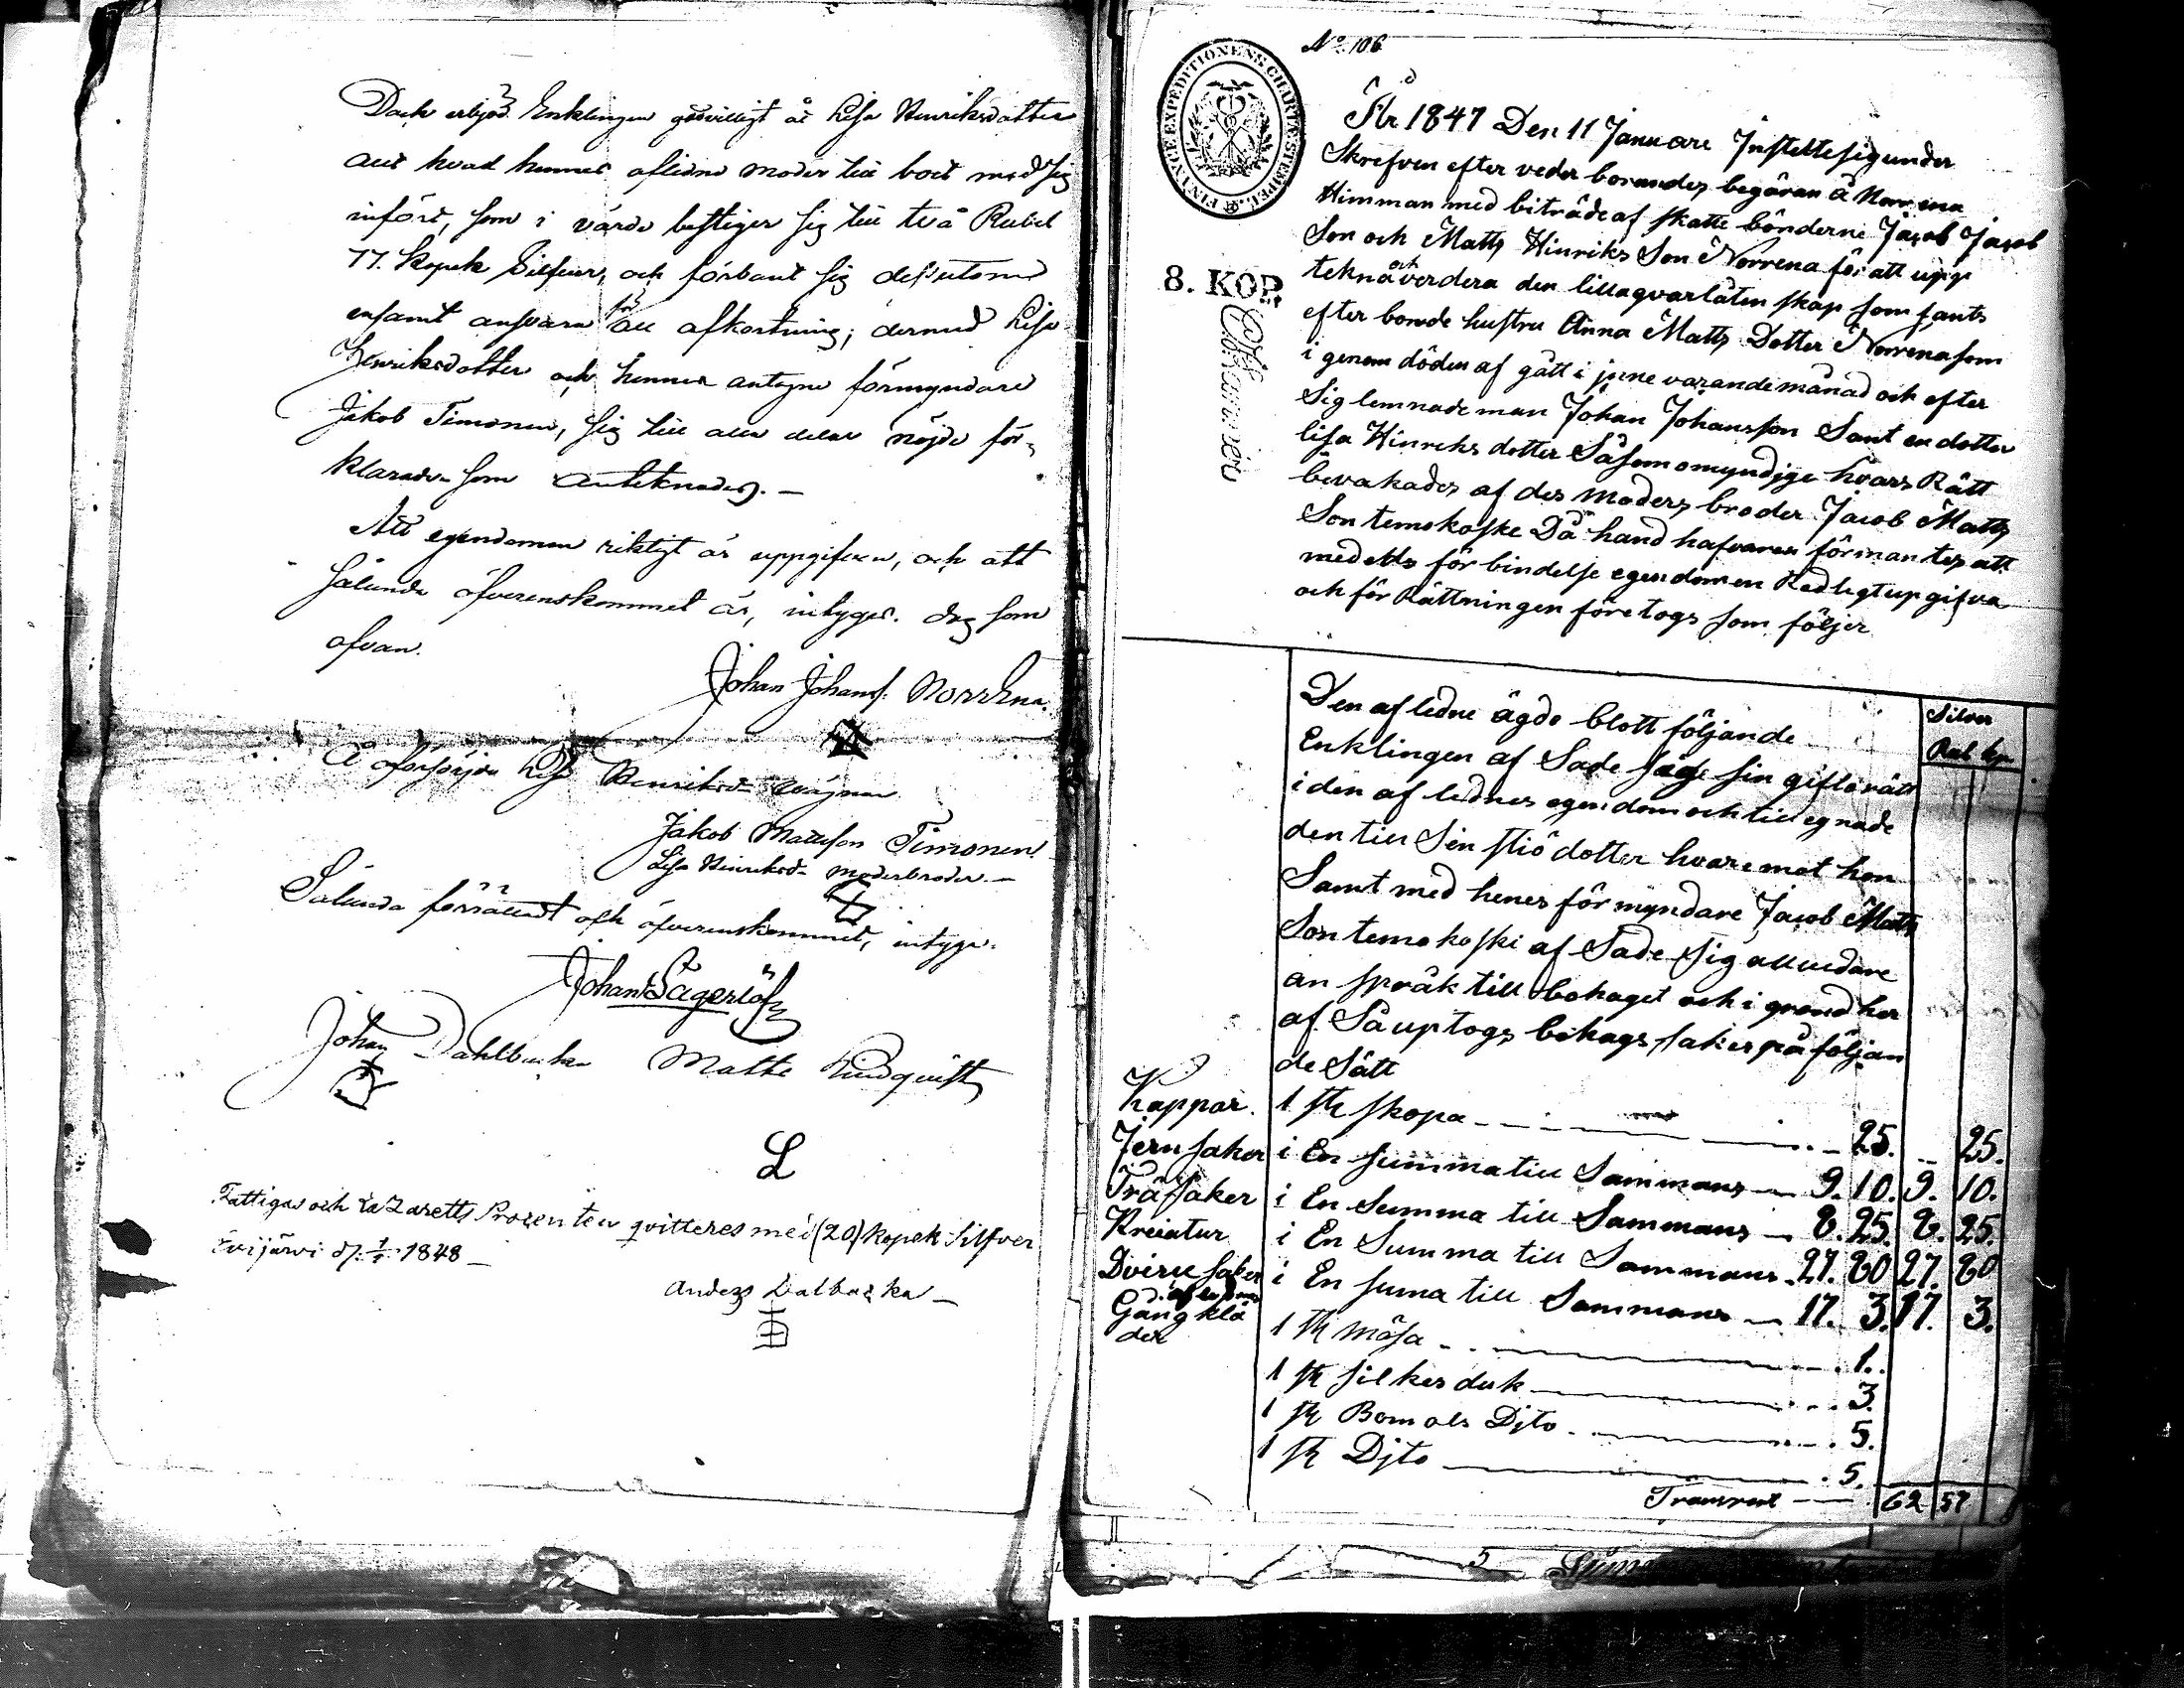 Dock erbjöd Enklingen godvilligt åt Lisa Henriksdotter
allt hvad hennes aflidne moder till boet med sig
infört, som i värde bestiger sig till två Rubel
77. Kopek Silfver, och förbant sig dessutom
ensamt ansvara för all afkortning; dermed Lisa
Henriksdotter och hennes antagne förmyndare
Jakob Timonen, sig till alla delar nöjde för-
klarade. Som antecknades.—
Att egendomen riktigt är uppgifven, och att
sålunda öfverenskommet är, intygar. Dag som
ofvan.
Johan Johanss. Norrena.
Å oförsörjda Lisa Henriksdr. vägnar
Jakob Mattsson Timonen
Lisa Henriksdr. moderbroder.—
Sålunda förrättadt och öfverenskommet, intyga:
Johan Sagerlöf
Johan Dahlbacka Matts Lindqvist
L
Fattigas och Lazaretts Procenten qvitteres med (20) kopek Silfver
Evijärvi d. 1/1 1848—
Anders Dalbacka—
No. 106
FINANCE EXPEDITIONENS CHARTÆ STEMPEL.
8. KOP.
År 1847 Den 11 Januari Instelte sig under
Skrefven efter veder borandes begäran å Norrena
Himman med biträde af skatte bönderne Jacob Jacob
Son och Matts Hinriks Son Norrena för att upp
tekna och verdera den lilla qvarlåten skap som fants
efter bonde hustru Anna Matts Dotter Norrena som
i genom döden af gått i june varande månad och efter
Sig lemnade man Johan Johansson Samt en dotter
lisa Hinriks dotter Såsom omyndige hvars Rätt
bevakades af des moders broder Jacob Matts
Son temokoske Då hand hafvaren förmantes att
med eds för bindelse egendomen Redligt up gifva
och för Rättningen företogs som följer
Silver
Rub kp
Den af ledne ägde blott följande
Enklingen af Sade sig sin giftorätt
i den af lednes egendom och till egnade
den till Sin stiv dotter hvaremot hon
Samt med henes för myndare Jacob Matts
Son temokoski af Sade Sig all vidare
an språk till bohaget och i grund her
af Så uptogs bohags saker på följan
de Sätt
Koppar. 1 st skopa — 25. — 25.
Jern saker i En summa till Sammans — 9. 10. 9. 10.
Träsaker i En Summa till Sammans — 8. 25. 8. 25.
Kreiatur i En Summa till Sammans 27. 80 27. 80
Diverse saker i En suma till Sammans — 17. 3. 17. 3.
af lednes
Gång klä 1 st mösa — 1.
der
1 st silkes duk — 3.
1 st Bomols Djto — 5.
1 st Djto — 5.
Transport — 62 57